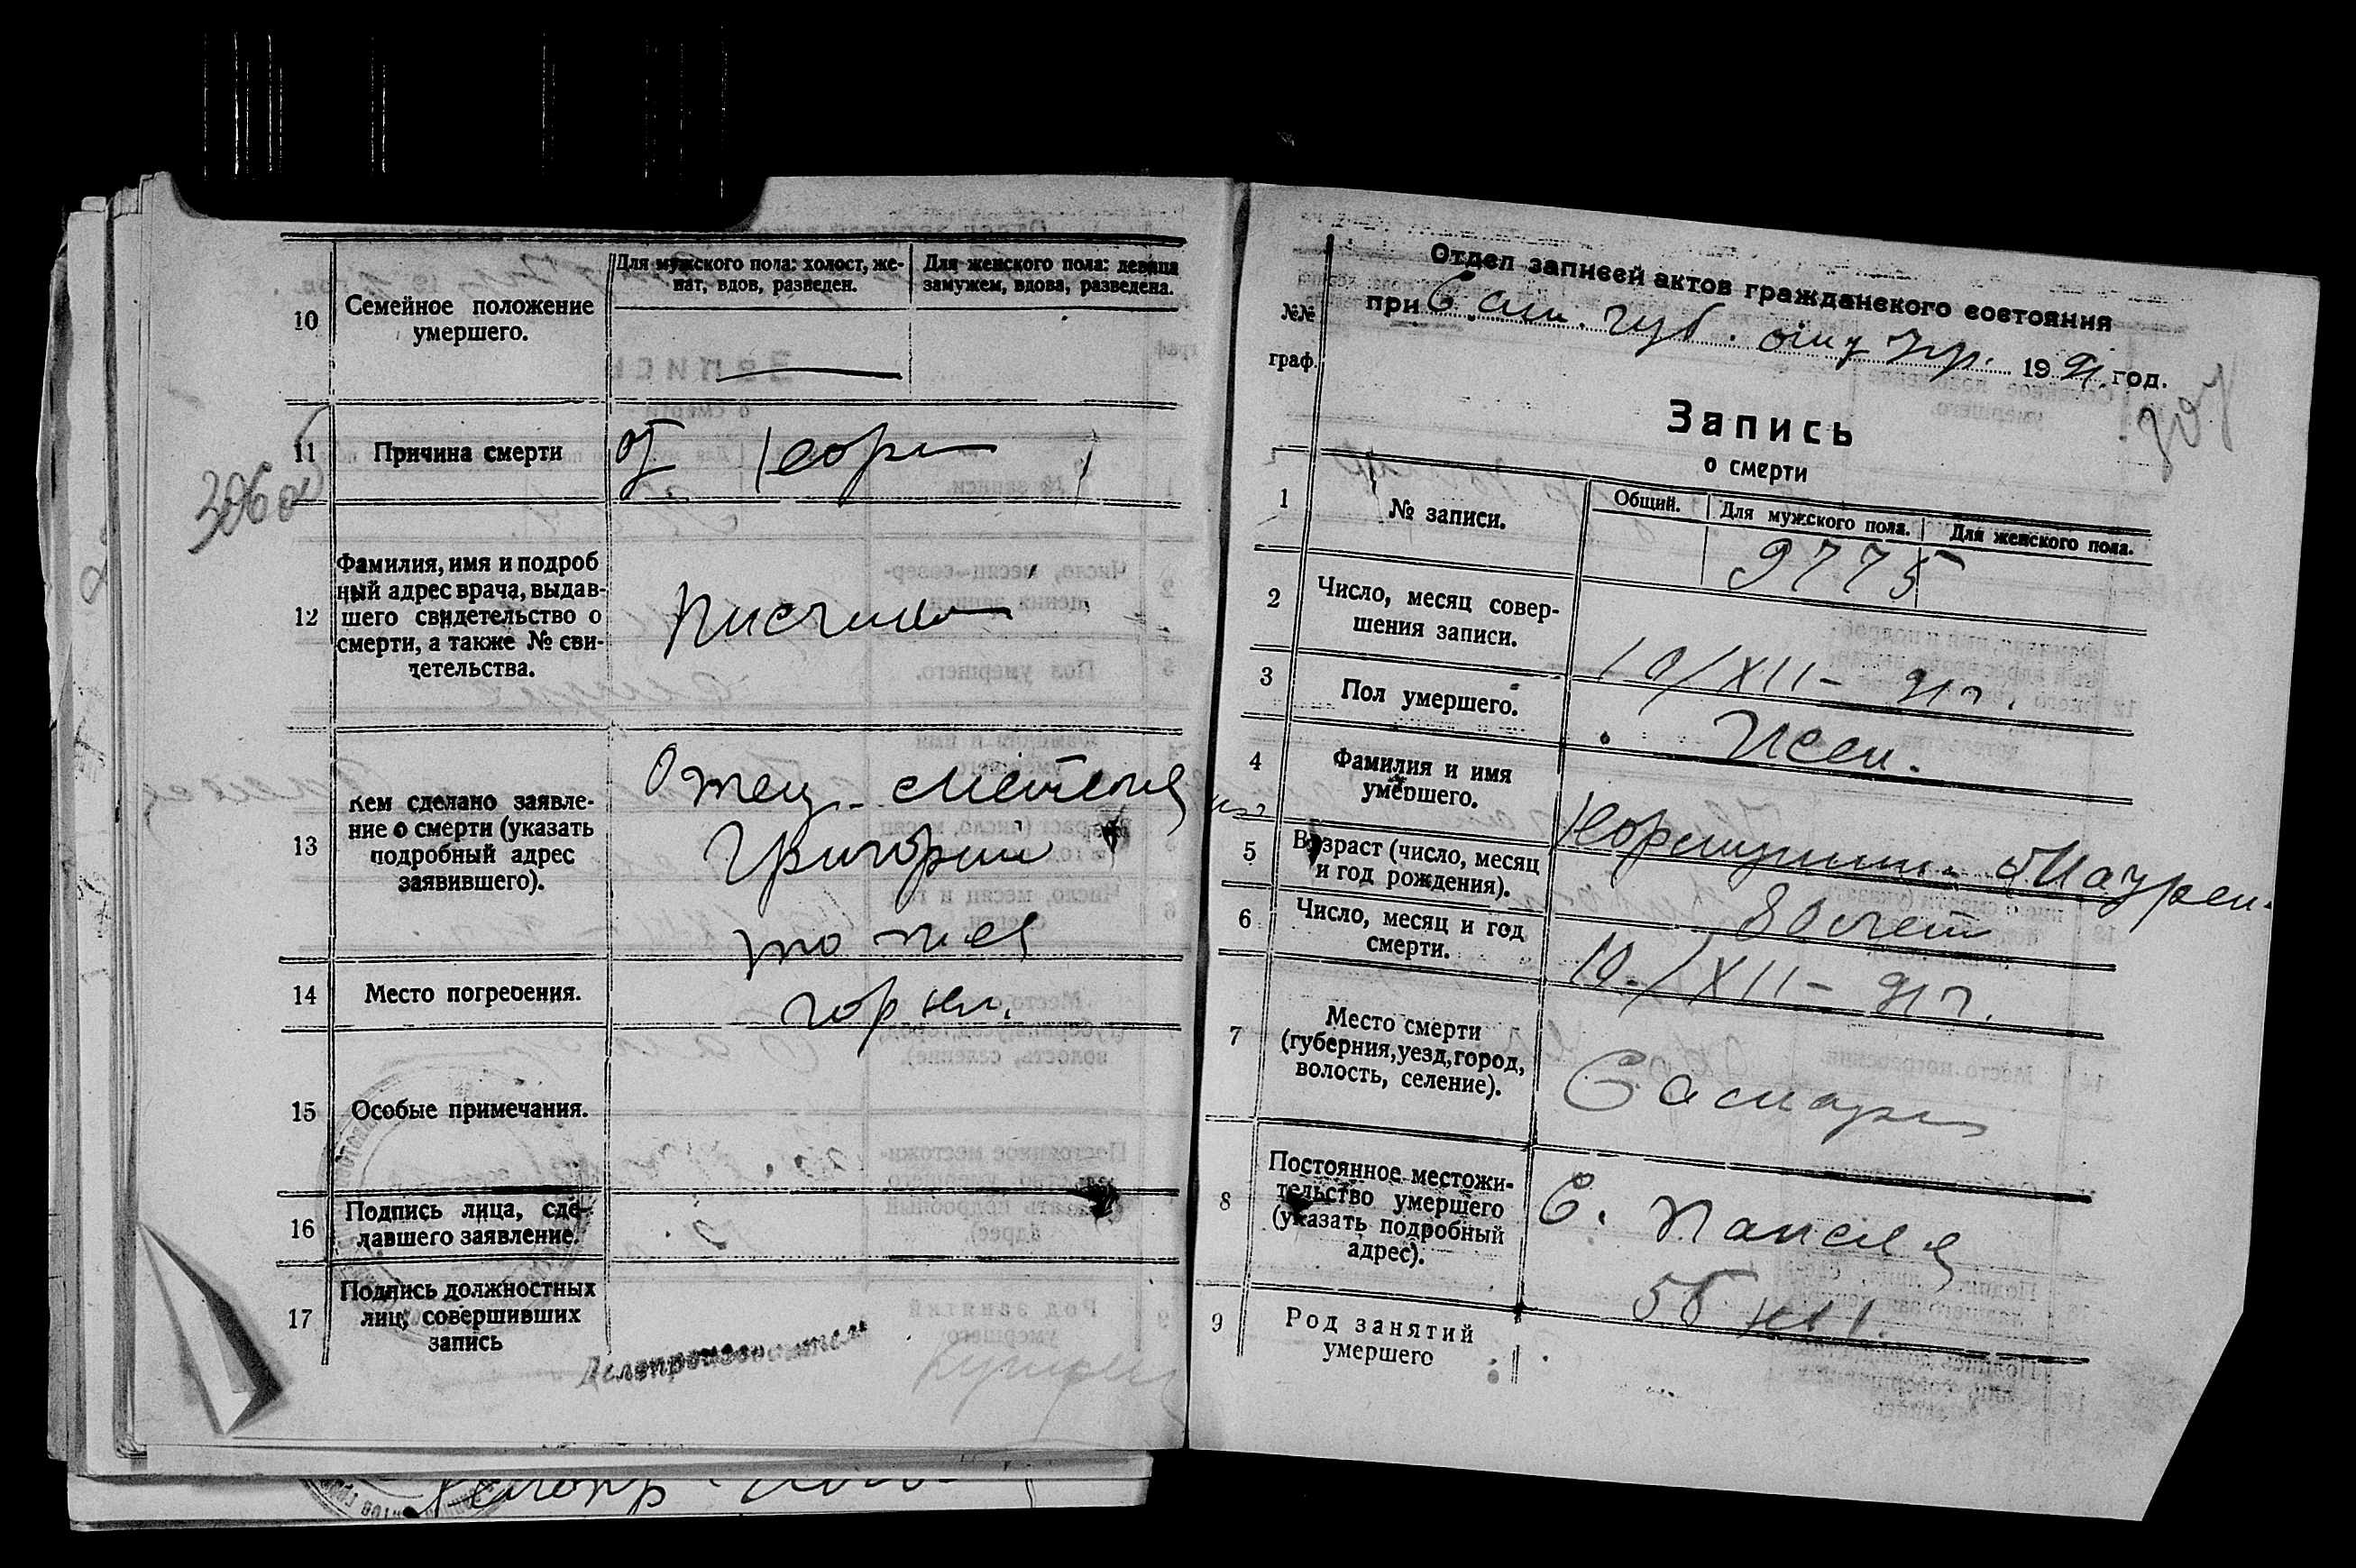 10
Семейное положение
умершего.
Для мужского пола: холост, же-
нат, вдов, разведен.
Для женского пола: девица
замужем, вдова, разведена.
11
Причина смерти
от кори
306 об
12
Фамилия, имя и подроб
ный адрес врача, выдав-
шего свидетельство о
смерти, а также № сви-
детельства.
13
Кем сделано заявле-
ние о смерти (указать
подробный адрес
заявившего).
Отец
Григорий
14
Место погребения.
гор кл.
15
Особые примечания.
16
Подпись лица, сде-
лавшего заявление.
17
Подпись должностных
лиц, совершивших
запись
Делопроизводитель
Отдел записей актов гражданского состояния
при Сам. губ. отд упр. 1921 год.
307
№№
граф.
Запись
о смерти
1
№ записи.
Общий.
Для мужского пола.
Для женского пола.
9775
2
Число, месяц совер-
шения записи.
10/XII - 21 г.
3
Пол умершего.
жен.
4
Фамилия и имя
умершего.
5
Возраст (число, месяц
и год рождения).
6
Число, месяц и год
смерти.
10/XII - 21 г.
7
Место смерти
(губерния, уезд, город,
волость, селение).
Самара
8
Постоянное местожи-
тельство умершего
(указать подробный
адрес).
9
Род занятий
умершего